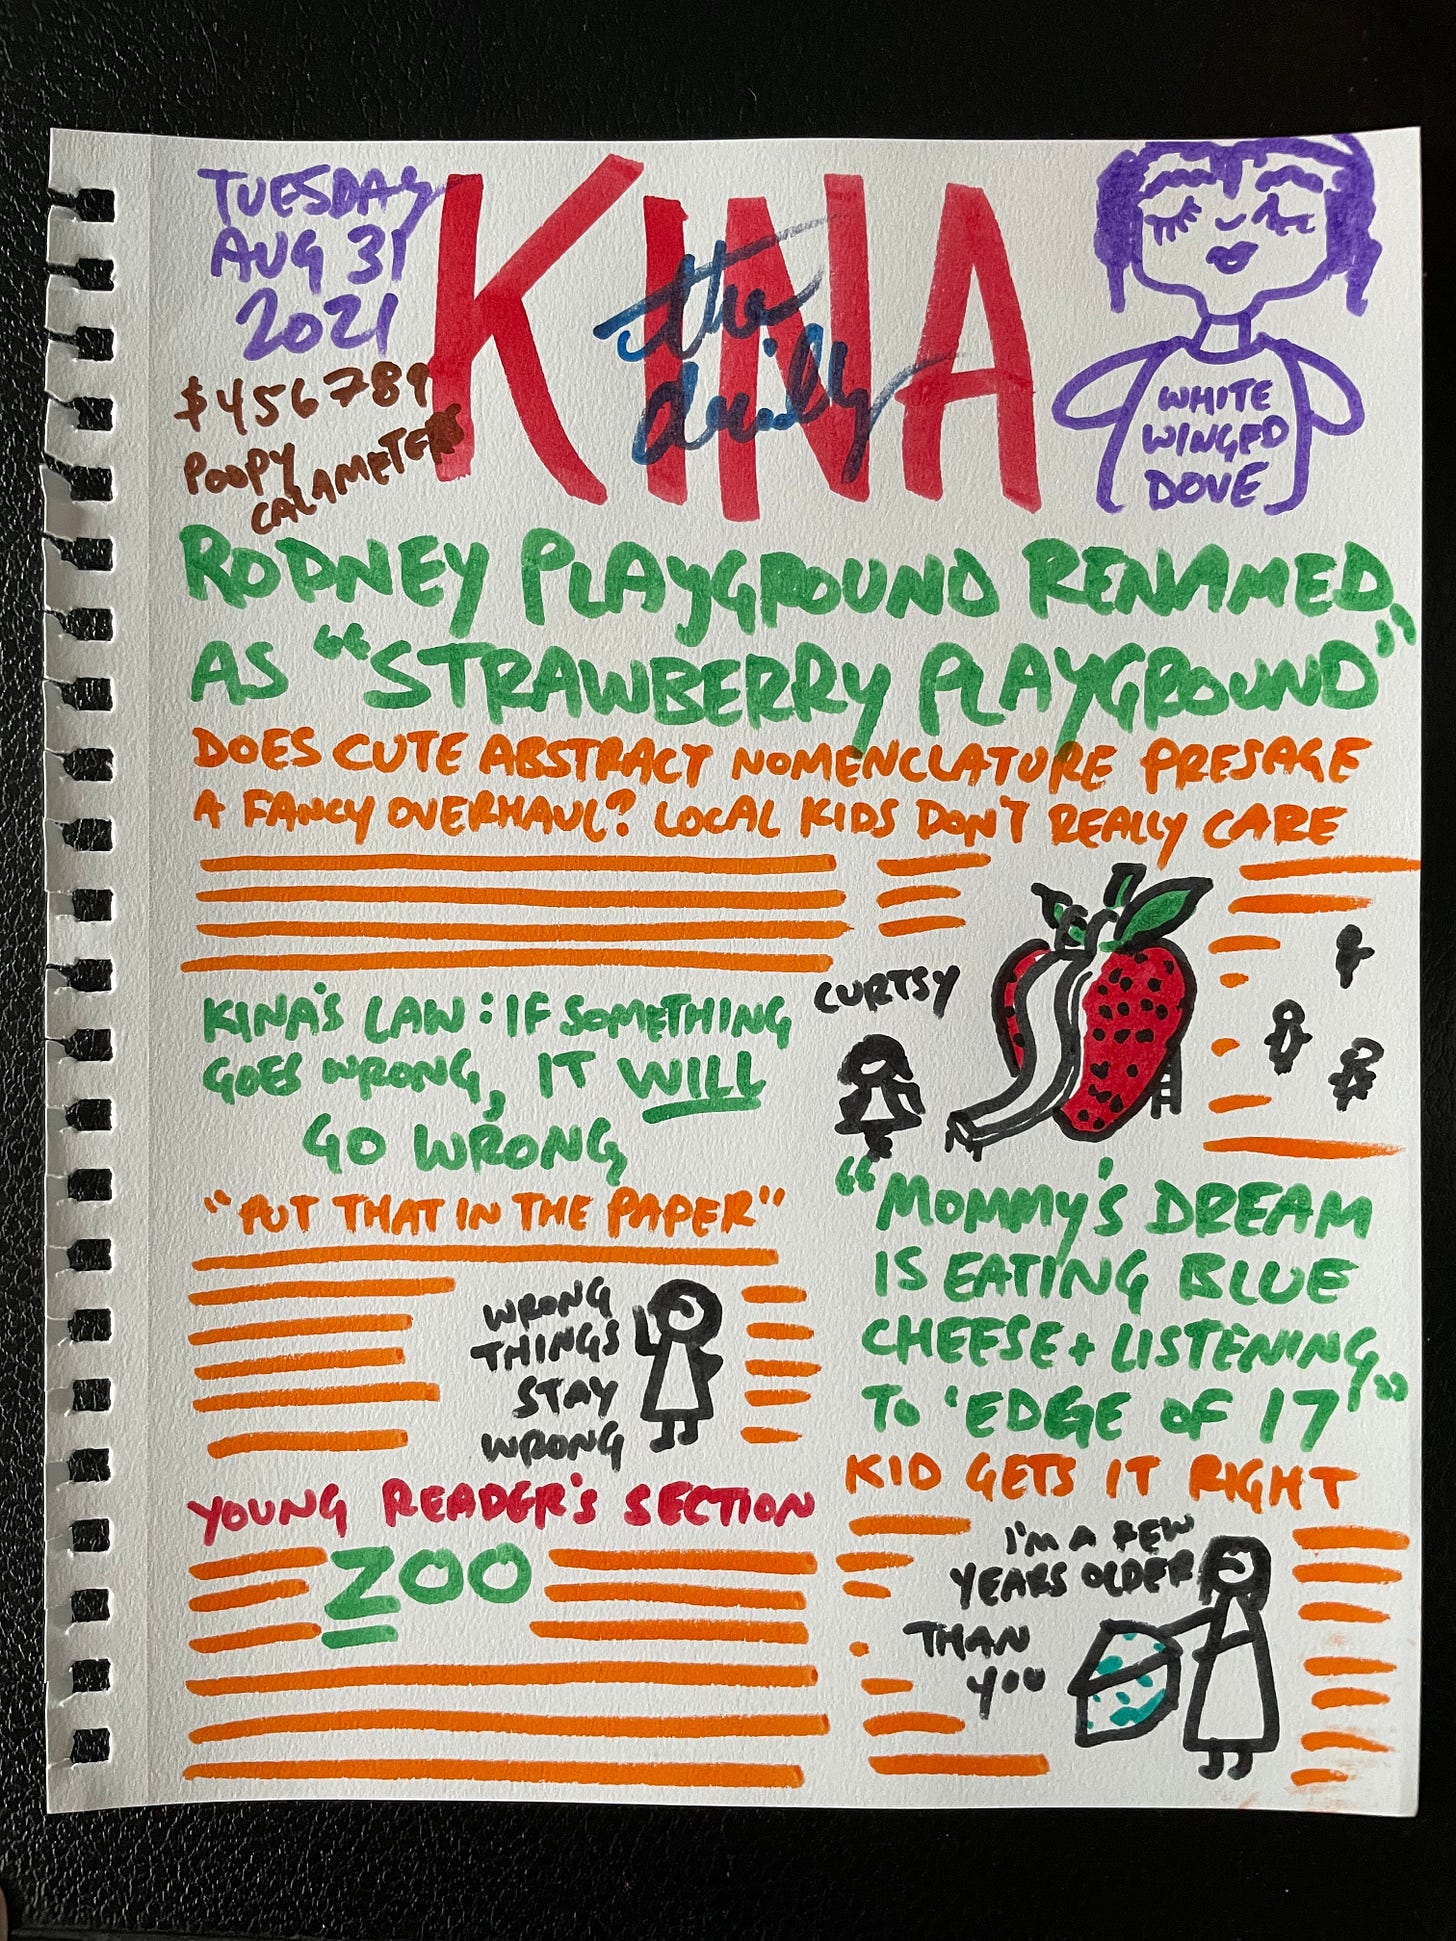 TUESDAY
AUG 31
2021
$456789
POOPY
CALAMETERS
KINA
the
daily
WHITE
WINGED
DOVE
RODNEY PLAYGROUND RENAMED
AS "STRAWBERRY PLAYGROUND"
DOES CUTE ABSTRACT NOMENCLATURE PRESAGE
A FANCY OVERHAUL? LOCAL KIDS DON'T REALLY CARE
CURTSY
KINA'S LAW: IF SOMETHING
GOES WRONG, IT WILL
GO WRONG
"PUT THAT IN THE PAPER"
WRONG
THINGS
STAY
WRONG
YOUNG READER'S SECTION
ZOO
"MOMMY'S DREAM
IS EATING BLUE
CHEESE + LISTENING
TO 'EDGE OF 17'"
KID GETS IT RIGHT
I'M A FEW
YEARS OLDER
THAN
YOU